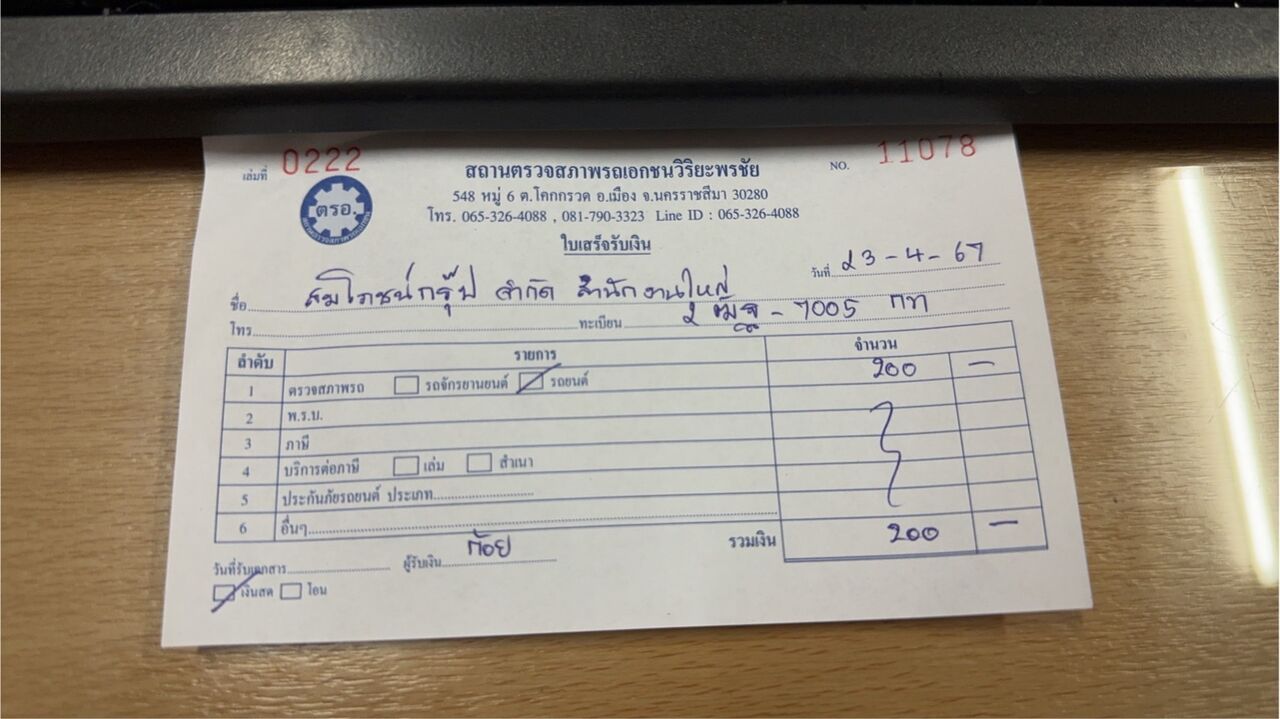 เล่มที่ 0222
สถานตรวจสภาพรถเอกชนวิริยะพรชัย
NO. 11078
ตรอ.
สถานตรวจสภาพรถเอกชน
548 หมู่ 6 ต.โคกกรวด อ.เมือง จ.นครราชสีมา 30280
โทร. 065-326-4088 , 081-790-3323 Line ID : 065-326-4088
ใบเสร็จรับเงิน
วันที่ 23-4-67
ชื่อ สมโภชน์กรุ๊ป จำกัด สำนักงานใหญ่
โทร. ทะเบียน 2 ฒฐ - 7005 กท
ลำดับ รายการ จำนวน
1 ตรวจสภาพรถ รถจักรยานยนต์ รถยนต์ 200 –
2 พ.ร.บ.
3 ภาษี
4 บริการต่อภาษี เล่ม สำเนา
5 ประกันภัยรถยนต์ ประเภท
6 อื่นๆ
รวมเงิน 200 –
วันที่รับเอกสาร ผู้รับเงิน ก้อย
เงินสด โอน